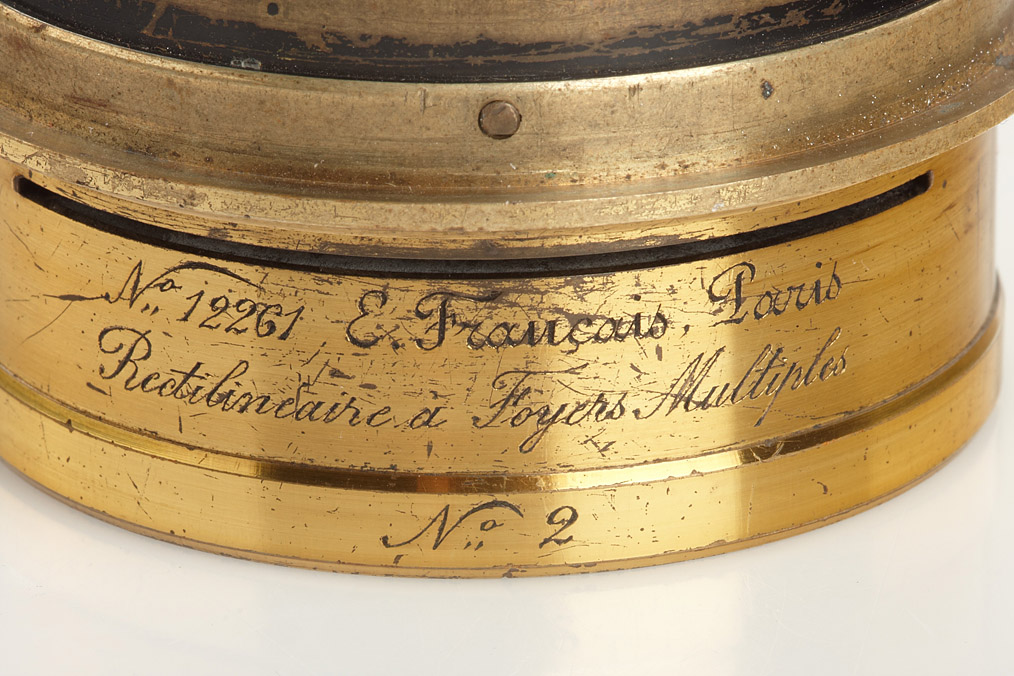 No. 12261 E. Français, Paris
Rectilineaire à Foyers Multiples
No. 2